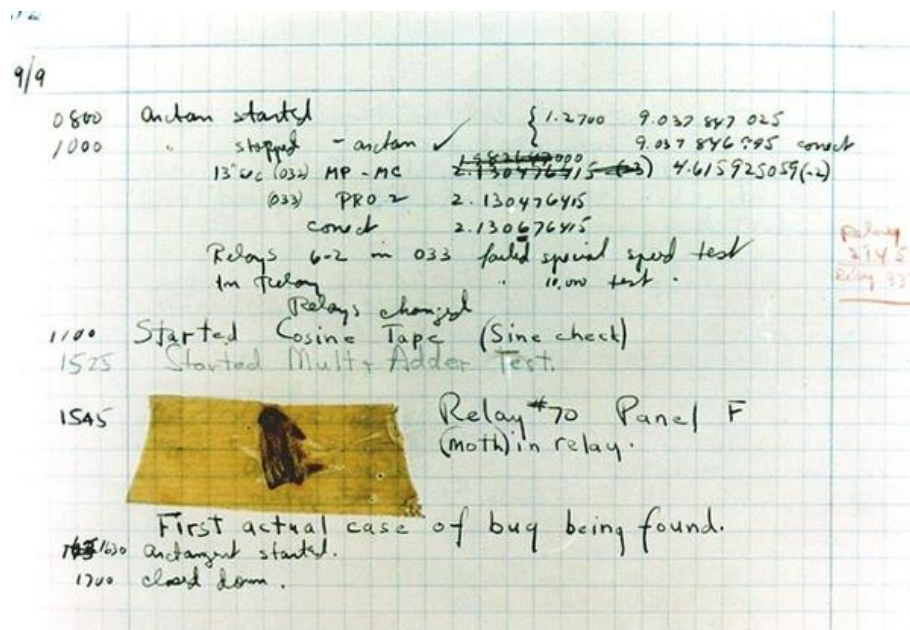 9/9
0800 arctan started { 1.2700 9.037 847 025
1000 " stopped - arctan ✓ 9.037 846 995 correct
13" uc (032) MP - MC 2.130476415 (-3) 4.615925059(-2)
(033) PRO 2 2.130476415
correct 2.130676415
Relays 6-2 in 033 failed special speed test
In Relay " 10,000 test .
Relays changed
1100 Started Cosine Tape (Sine check)
1525 Started Mult + Adder Test.
1545 Relay #70 Panel F
(moth) in relay.
First actual case of bug being found.
1630 arctangent started.
1700 closed down .
Relay
2145
Relay 33